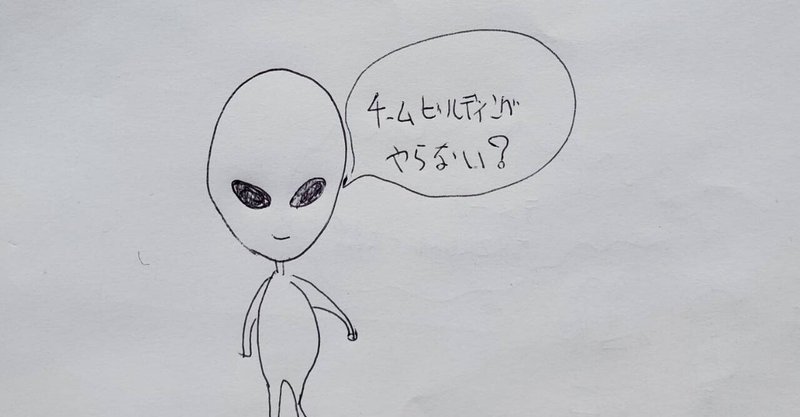 チームビルディング
やらない？